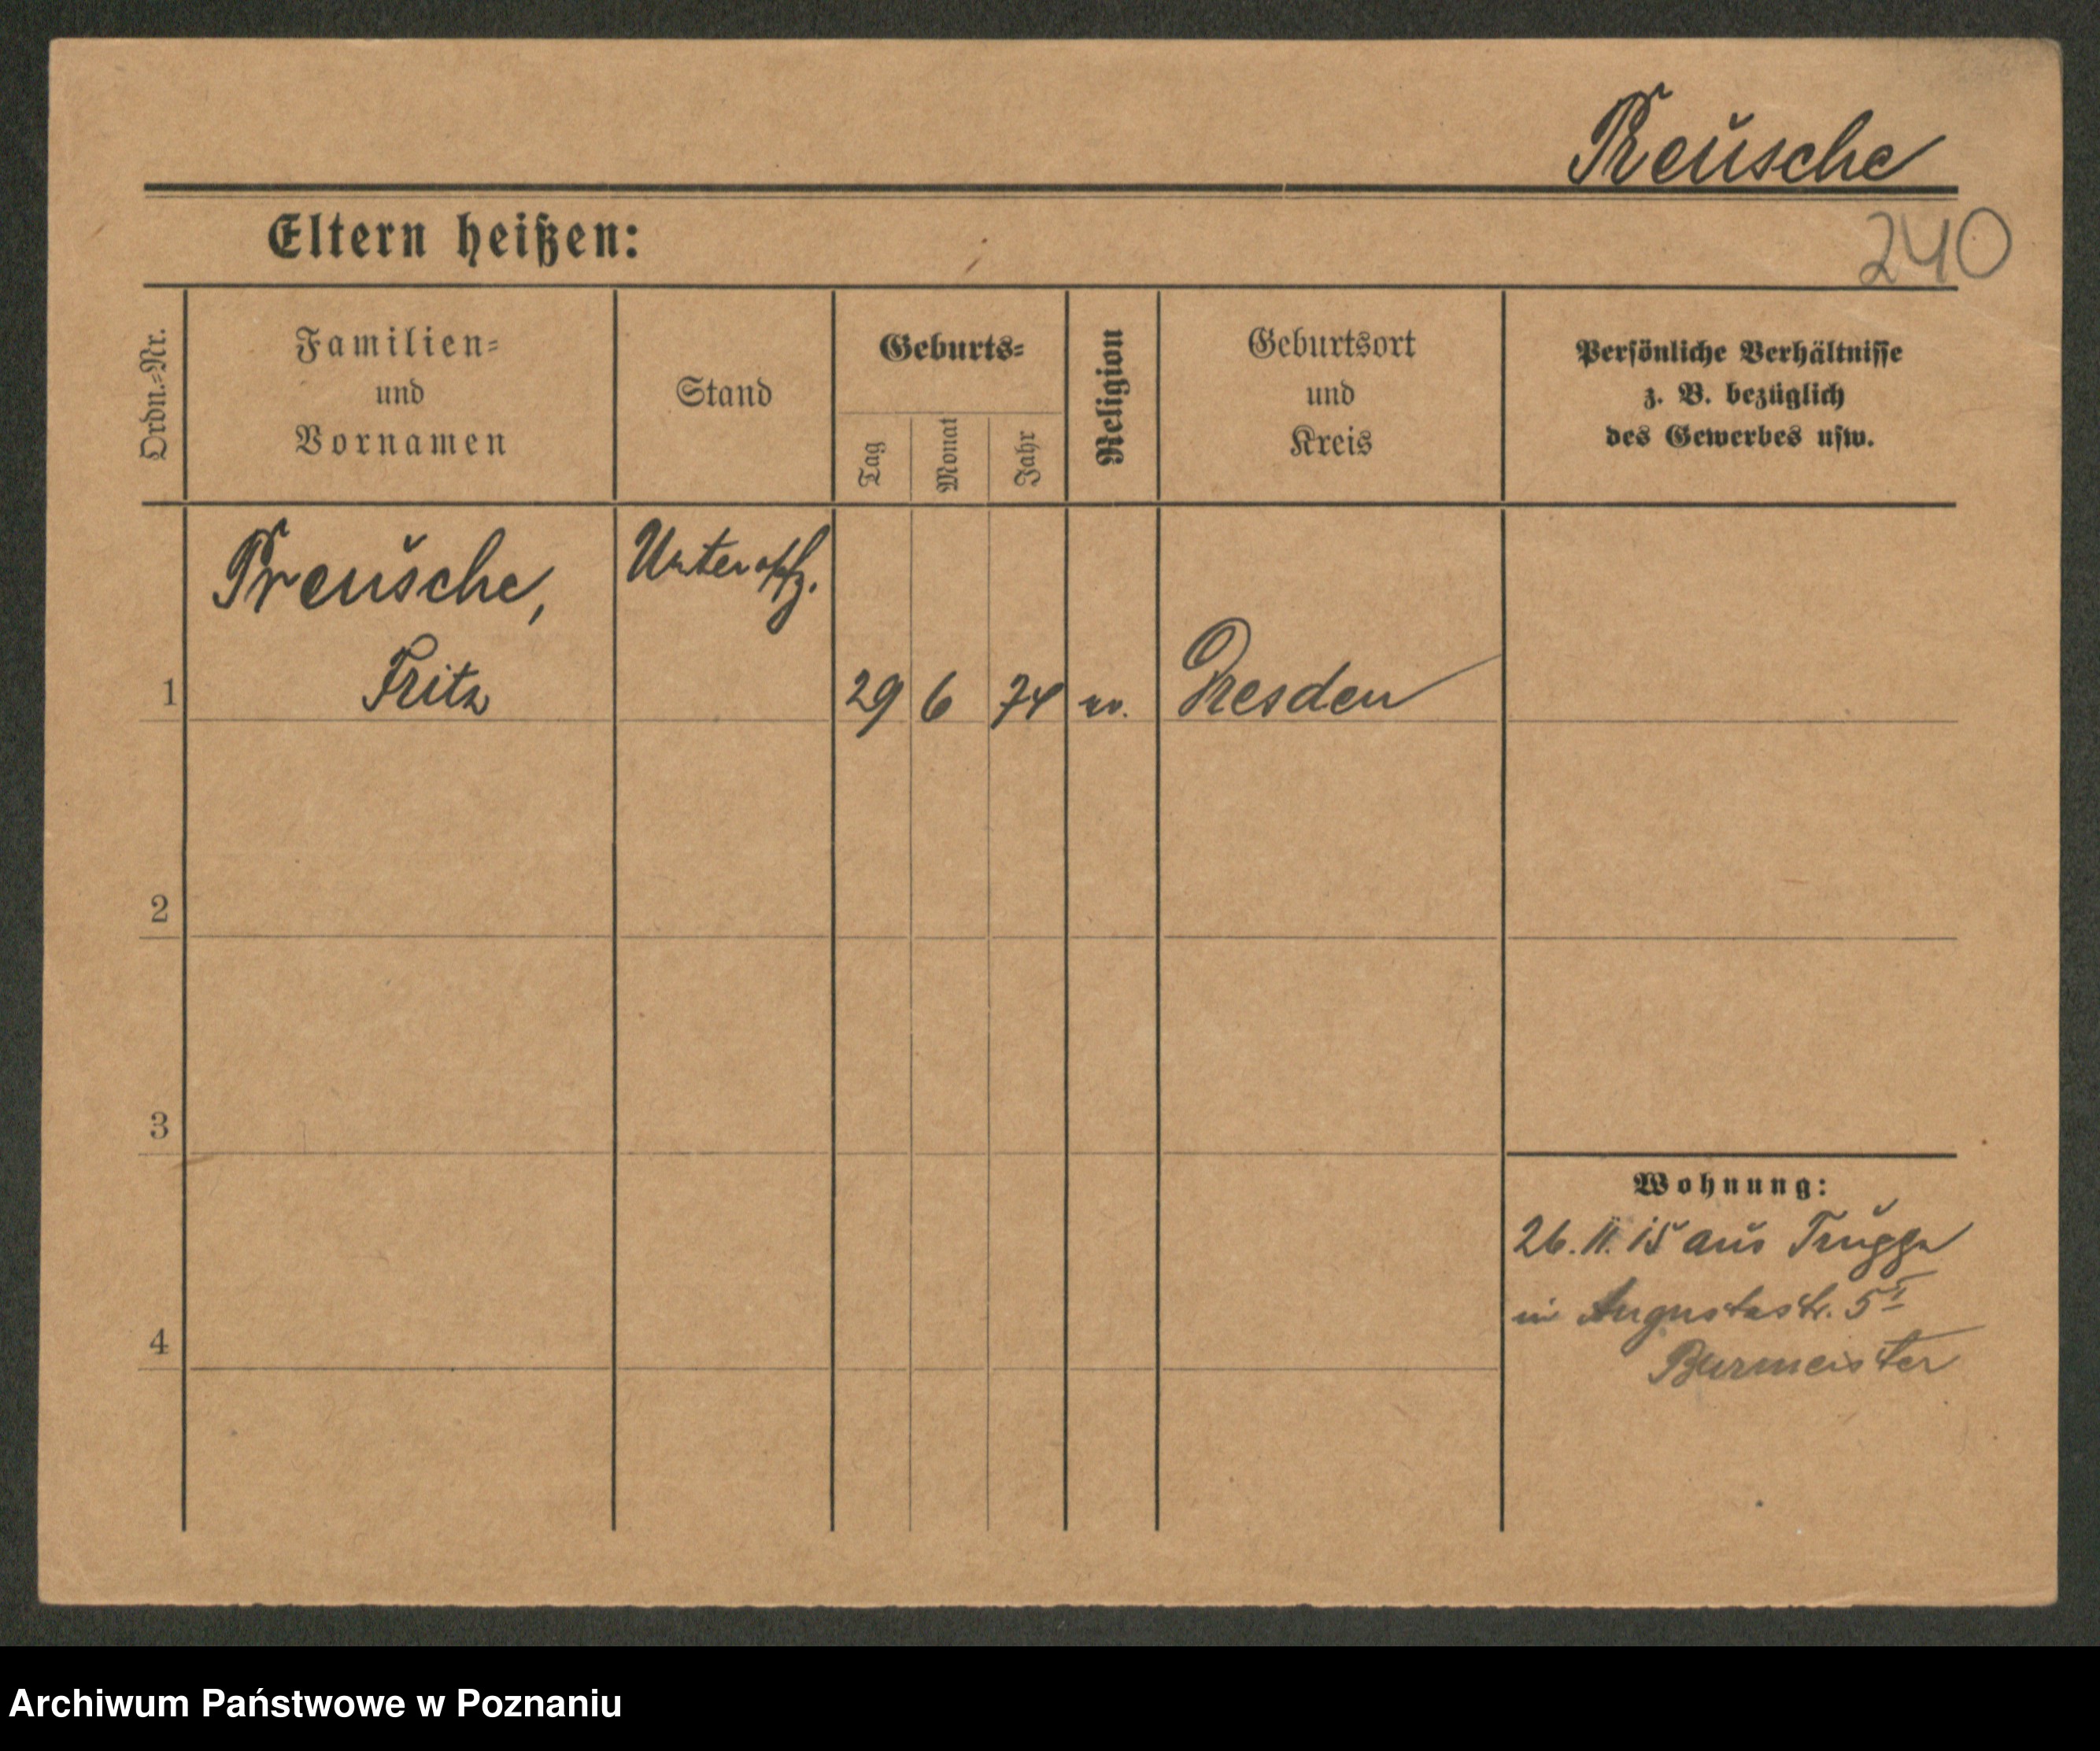 Preusche
240
Eltern heißen:
Ordn.=Nr.
Familien=
und
Vornamen
Stand
Geburts=
Tag
Monat
Jahr
Religion
Geburtsort
und
Kreis
Persönliche Verhältnisse
z. B. bezüglich
des Gewerbes usw.
1
Preusche,
Fritz
Unteroffz.
29 6 74
Dresden
2
3
4
Wohnung:
26. 11. 15 aus
in Augustastr. 5 I
Burmeister
Archiwum Państwowe w Poznaniu